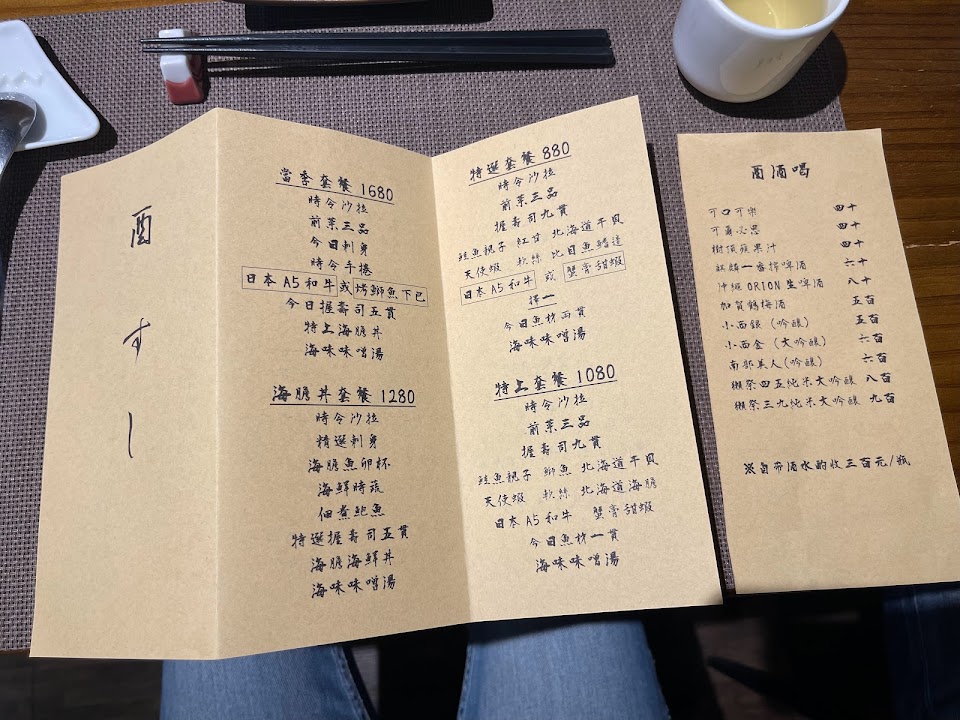 酉
す
し
當季套餐 1680
時令沙拉
前菜三品
今日刺身
時令手捲
日本A5和牛或烤鰤魚下巴
今日握壽司五貫
特上海膽丼
海味味噌湯
海膽丼套餐 1280
時令沙拉
精選刺身
海膽魚卵杯
海鮮時蔬
佃煮鮑魚
特選握壽司五貫
海膽海鮮丼
海味味噌湯
特選套餐 880
時令沙拉
前菜三品
握壽司九貫
鮭魚親子 紅甘 北海道干貝
天使蝦 軟絲 比目魚鰭邊
日本A5和牛 或 蟹膏甜蝦
擇一
今日魚材兩貫
海味味噌湯
特上套餐 1080
時令沙拉
前菜三品
握壽司九貫
鮭魚親子 鰤魚 北海道干貝
天使蝦 軟絲 北海道海膽
日本A5和牛 蟹膏甜蝦
今日魚材一貫
海味味噌湯
酉酒喝
可口可樂 四十
可爾必思 四十
樹頂蘋果汁 四十
麒麟一番搾啤酒 六十
沖繩ORION生啤酒 八十
加賀鶴梅酒 五百
小西銀(吟釀) 五百
小西金(大吟釀) 六百
南部美人(吟釀) 六百
獺祭四五純米大吟釀 八百
獺祭三九純米大吟釀 九百
※自帶酒水酌收三百元/瓶